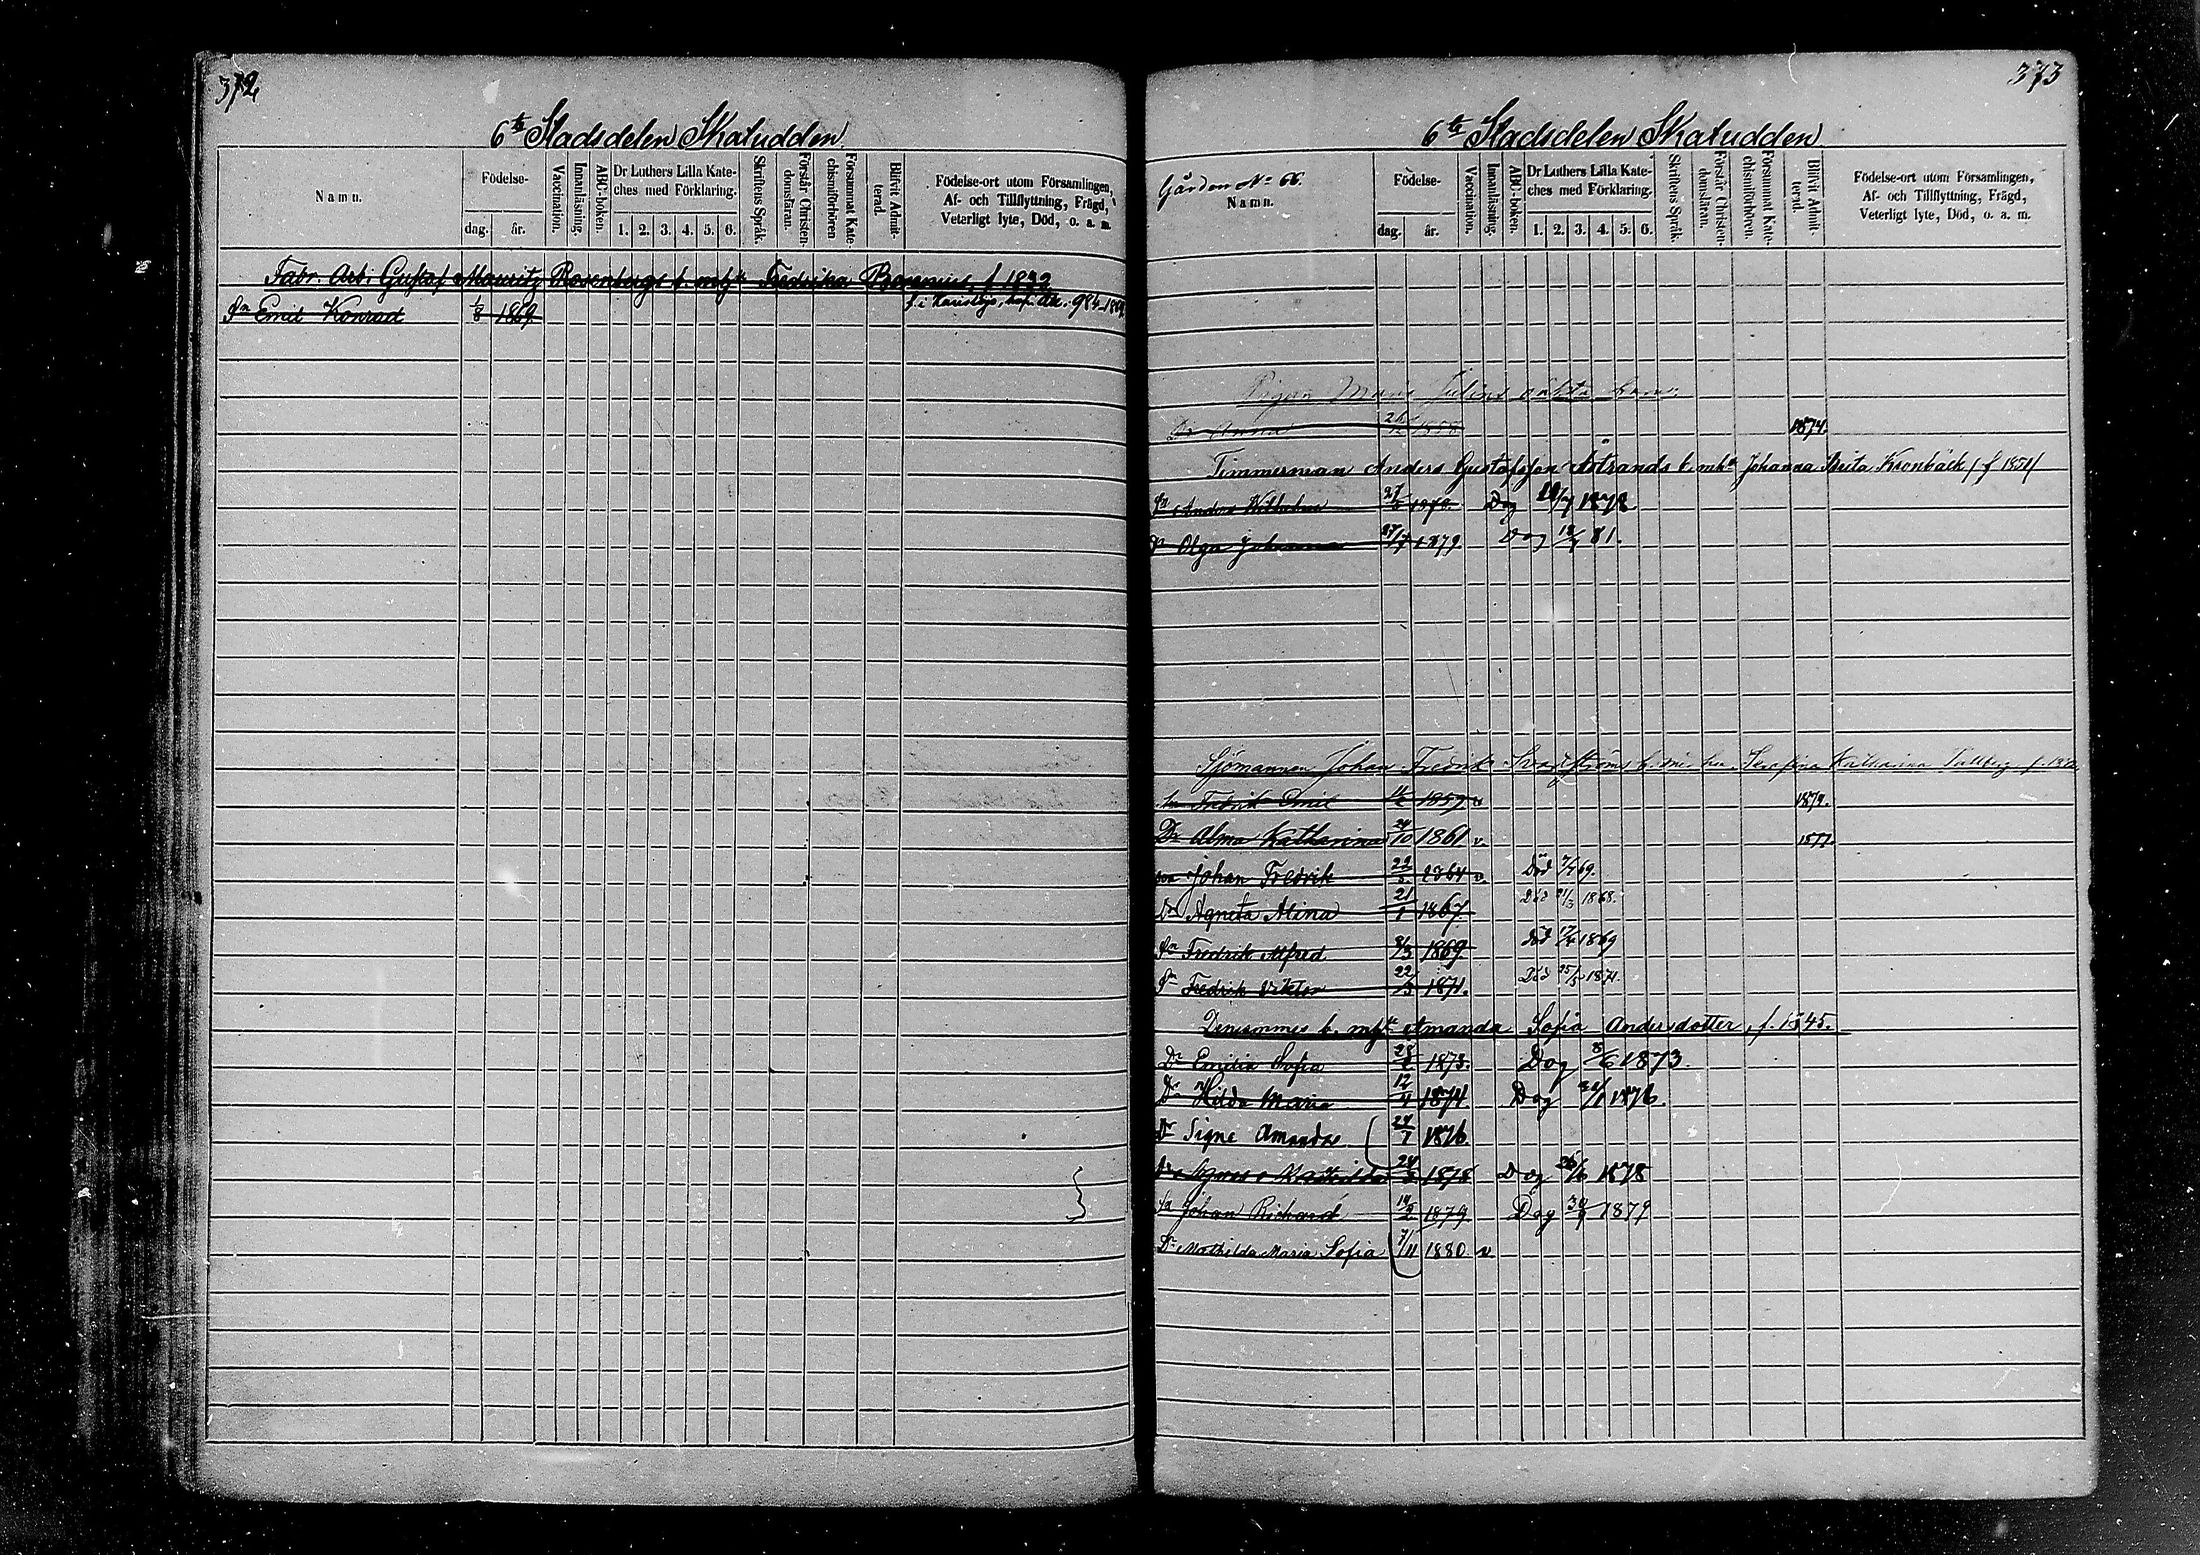 372
6te Stadsdelen Skatudden.
Namn.
Födelse-
dag. år.
Vaccination.
Innanläsning.
ABC-boken.
Dr Luthers Lilla Kate-
ches med Förklaring.
1. 2. 3. 4. 5. 6.
Skriftens Språk.
Förstår Christen-
domsläran.
Försummat Kate-
chismiförhören
Blifvit Admit-
terad.
Födelse-ort utom Församlingen,
Af- och Tillflyttning, Frägd,
Veterligt lyte, Död, o. a. m.
Fabr. Arb. Gustaf Mauritz Rosenbergs b. mhu Fredrika f. 1832
Sn Emil Konrad 1/8 1869.
373
6te Stadsdelen Skatudden.
Gården No 66.
Namn.
Födelse-
dag. år.
Vaccination.
Innanläsning.
ABC-boken.
Dr Luthers Lilla Kate-
ches med Förklaring.
1. 2. 3. 4. 5. 6.
Skriftens Språk.
Förstår Christen-
domsläran.
Försummat Kate-
chismiförhören.
Blifvit Admit-
terad.
Födelse-ort utom Församlingen,
Af- och Tillflyttning, Frägd,
Veterligt lyte, Död, o. a. m.
Pigan Maria oäkta barn:
Dr Anna 1858 1874.
Timmerman Anders Gustafsson Åstrands b. mhu Johanna Kronbäck / f 1851/
Sn Anders Wilhelm Dog 1878
Dr Olga Johanna 1879. Dog 81.
Sjömannen Johan Fredrik b. m. hu Serafina Katharina f.
Sn Fredrik Emil 1859 v 1879.
Dr Alma Katharina 24/10 1861 v. 1877.
Son Johan Fredrik 1864 v. Död 69.
Dr Agneta Alina 21/1 1867. Död 21/3 1868.
Sn Fredrik Alfred 8/3 1869. Död 1869
Sn Fredrik Viktor 22/3 1871. Död 25/5 1871.
Densammes b. mhu Amanda Sofia Andersdotter, f. 1845.
Dr Emilia Sofia 1873. Dog 8/6 1873.
Dr Hilda Maria 12/4 1874 Dog 30/1 1876.
Dr Signe Amanda 24/7 1876.
Dr Agnes Mathilda 1878 Dog 26/6 1878
Sn Johan Richard 14/2 1879 Dog 1879
Dr Mathilda Maria Sofia 7/11 1880 v